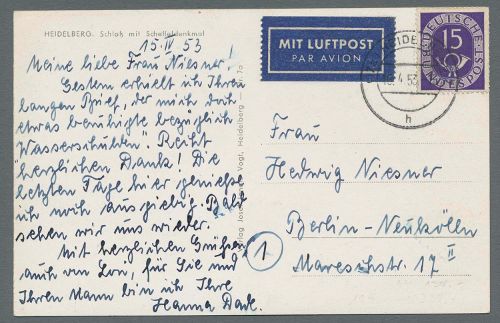 HEIDELBERG. Schloß mit Scheffeldenkmal
15. IV 53
Meine liebe Frau Niesner!
Gestern erhielt ich Ihren
langen Brief, der mich doch
etwas beruhigte bezüglich
"Wasserschulden". Recht
herzlichen Dank! Die
letzten Tage hier genieße
ich noch ausgiebig. Bald
sehen wir uns wieder.
Mit herzlichen Grüßen
auch von Lom, für Sie und
Ihren Mann bin ich Ihre
Hanna
Verlag Josef Vogt, Heidelberg
MIT LUFTPOST
PAR AVION
15
DEUTSCHE
POST
HEIDELBERG
4.53
h
Frau
Hedwig Niesner
Berlin-Neukölln
Mareschstr. 17 II
1